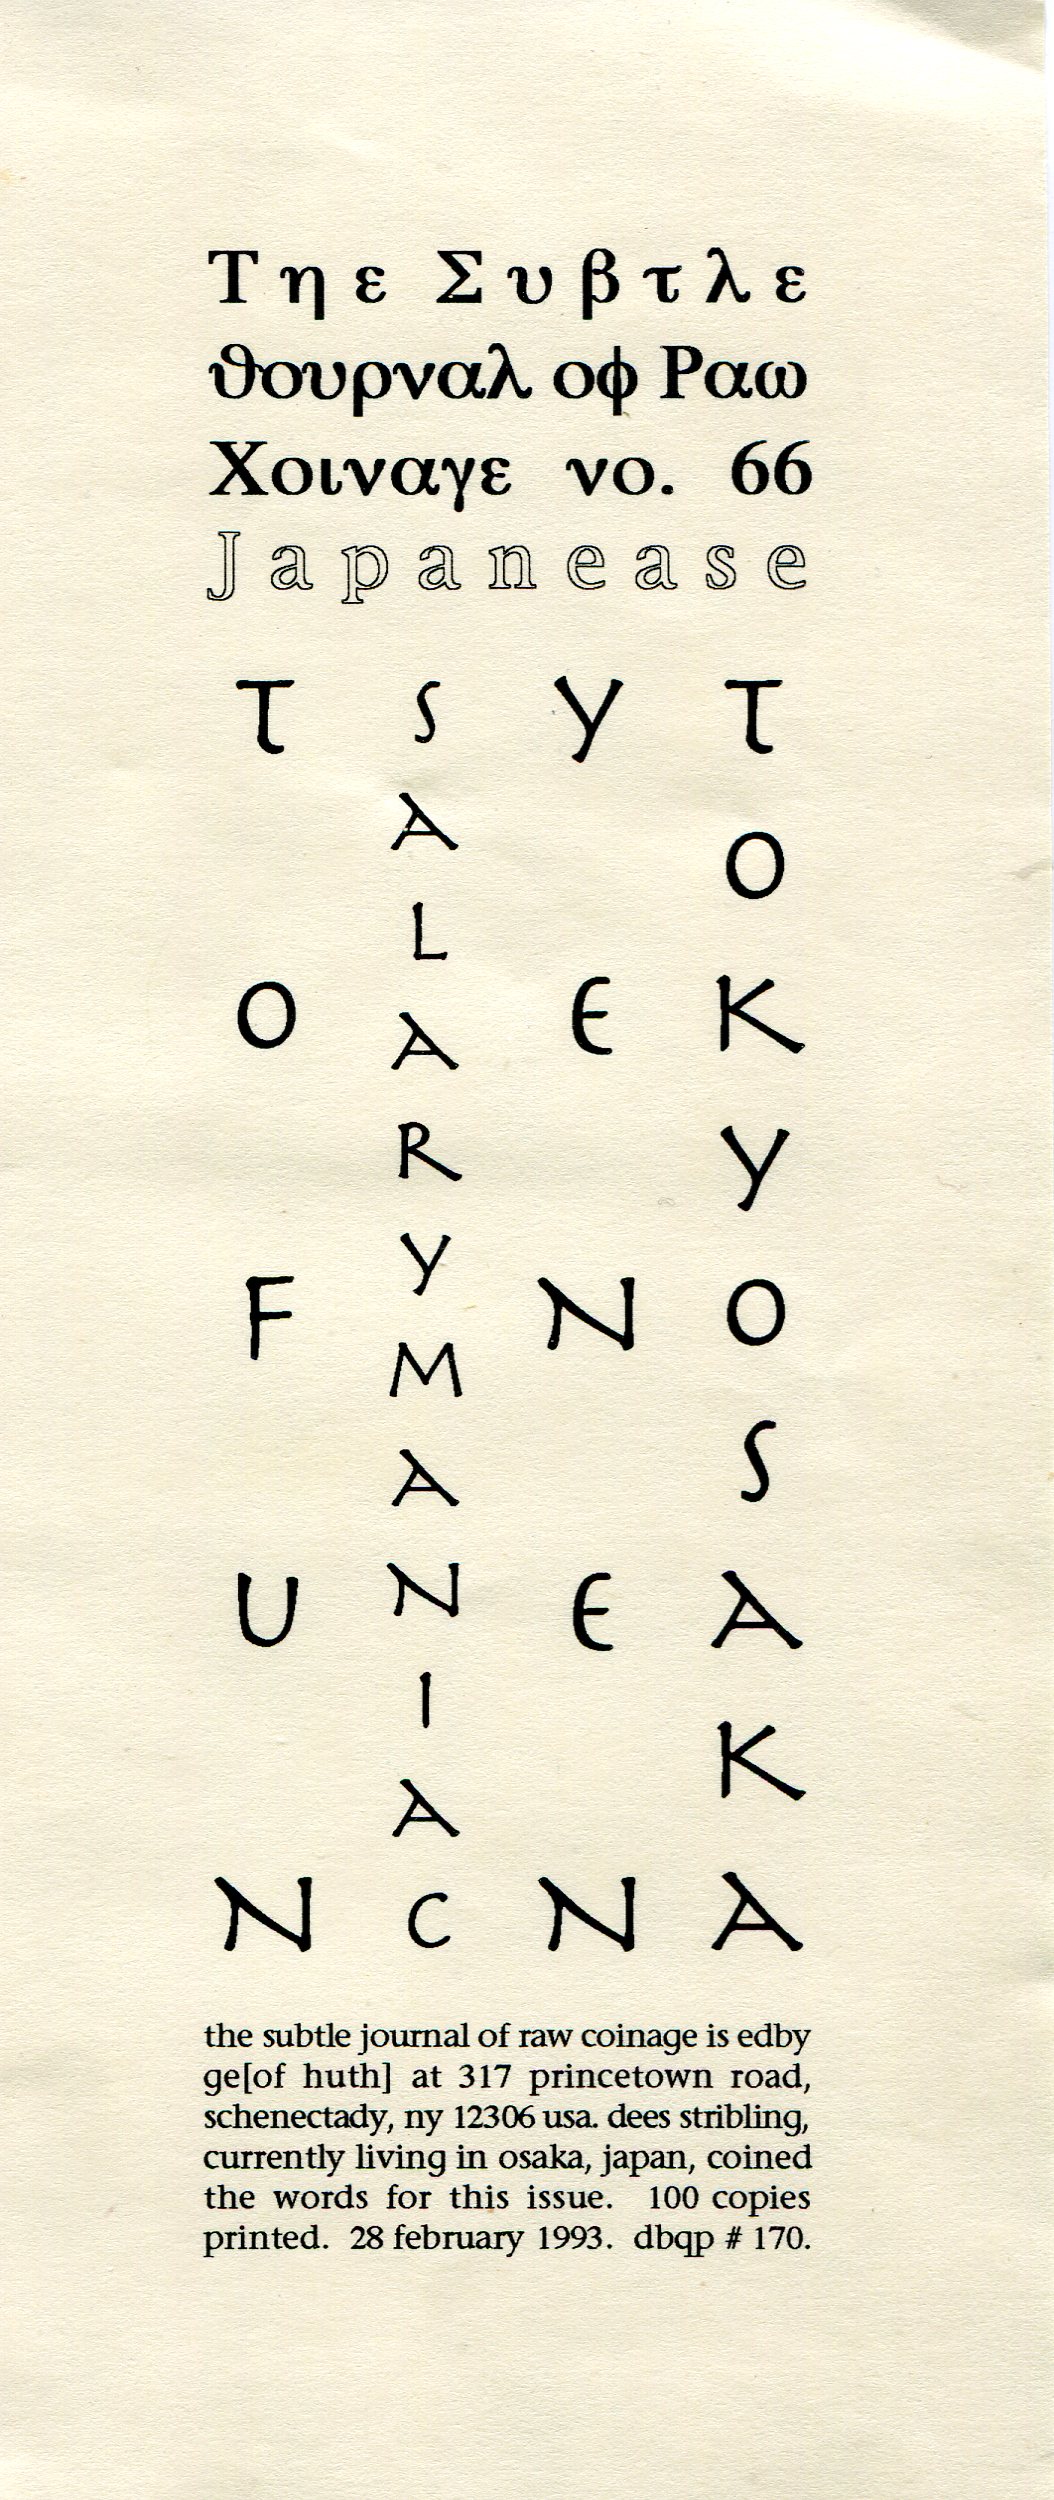 Τηε Συβτλε
ϑουρναλ οφ Ραω
Χοιναγε νο. 66
Japanease
TOFUN
SALARYMANIAC
YENEN
TOKYOSAKA
the subtle journal of raw coinage is edby
ge[of huth] at 317 princetown road,
schenectady, ny 12306 usa. dees stribling,
currently living in osaka, japan, coined
the words for this issue. 100 copies
printed. 28 february 1993. dbqp # 170.